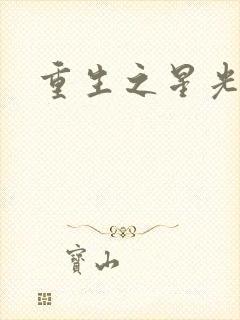 重生之星光
寶山